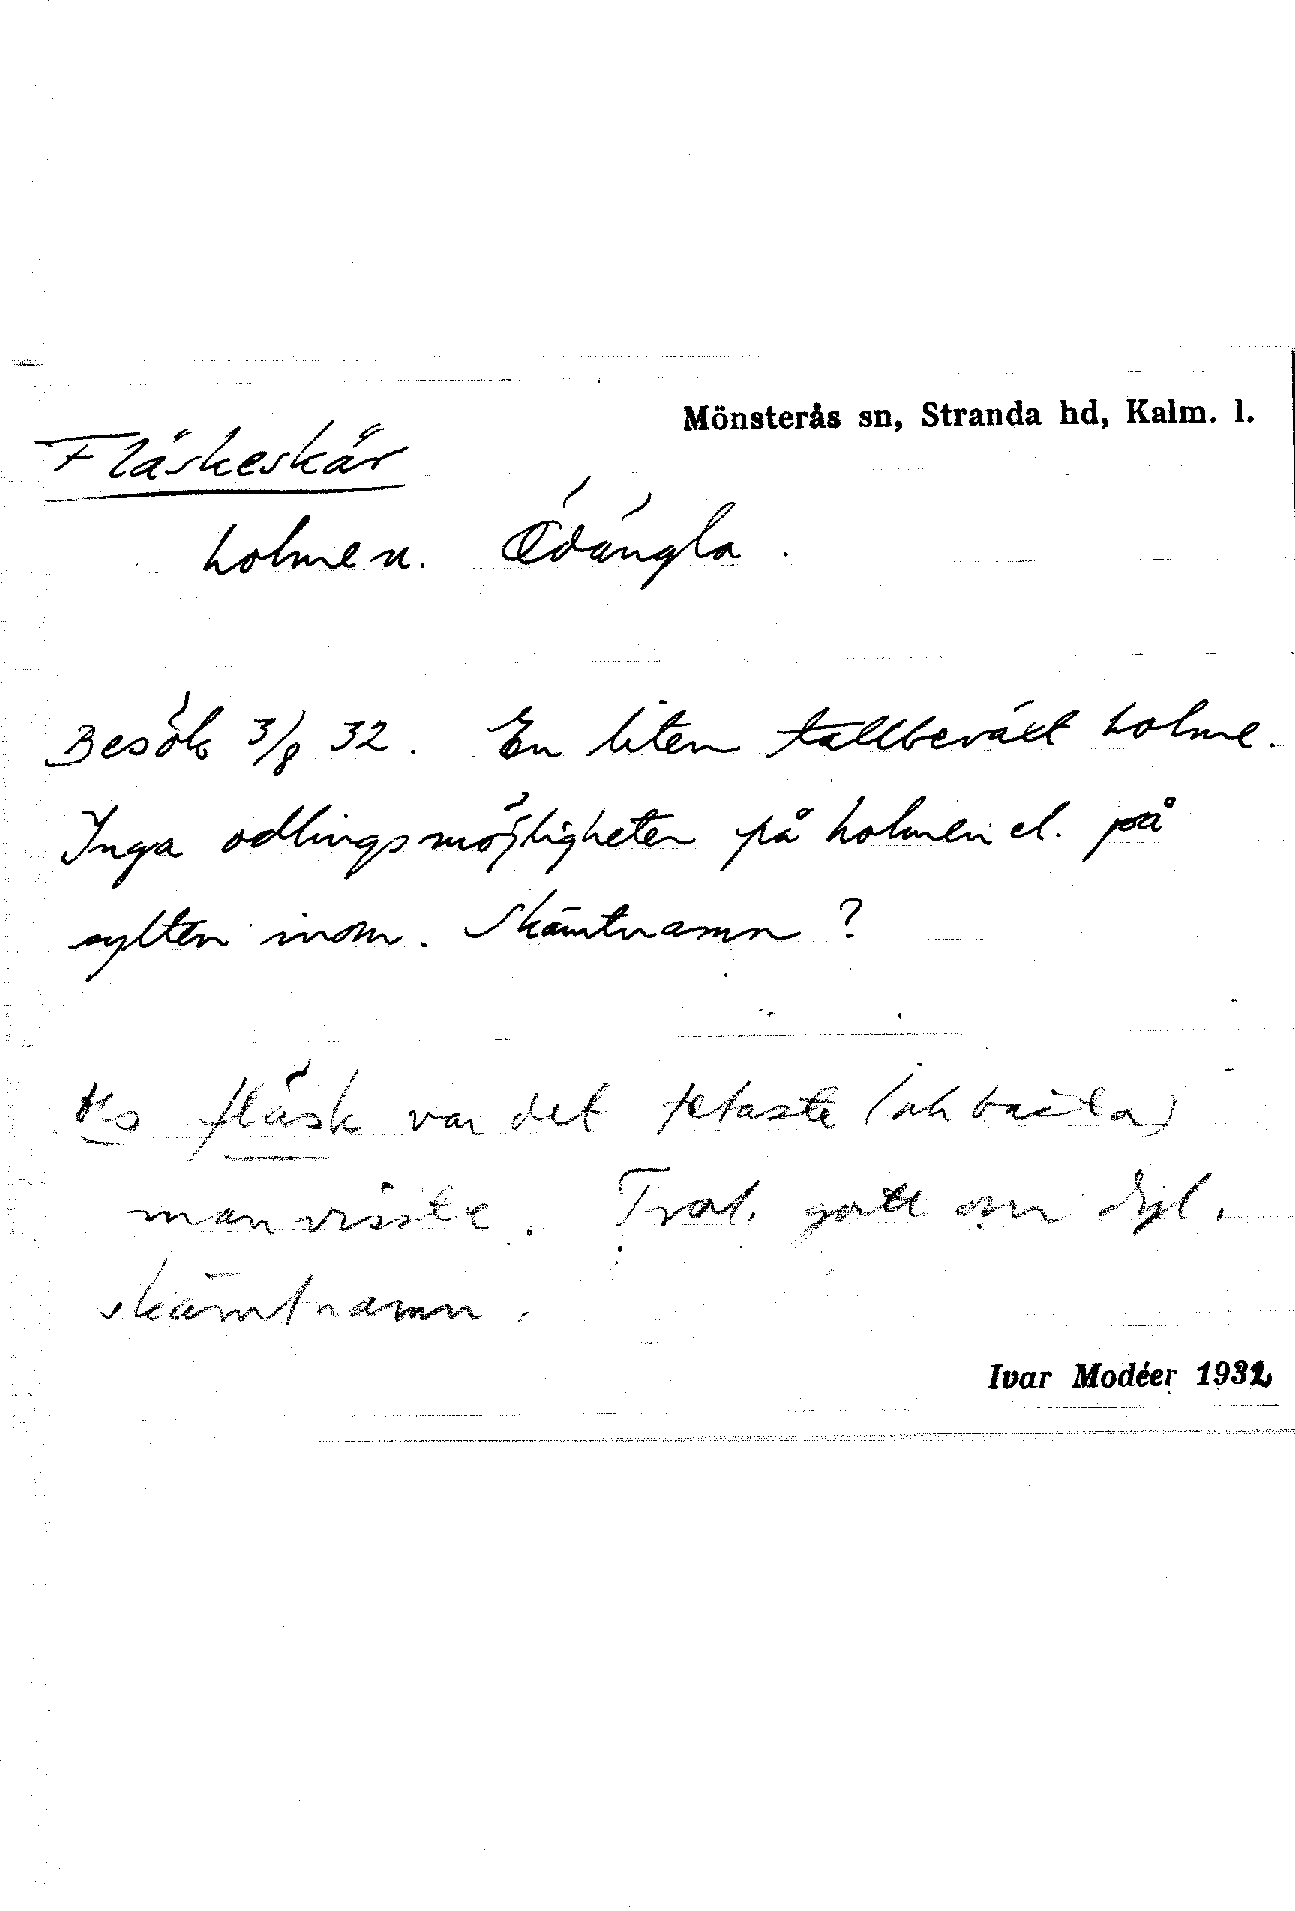 Mönsterås sn, Stranda hd, Kalm. l.
Fläskeskär
holmen. Ödängla.
Besök 3/8 32. En liten tallbeväxt holme.
Inga odlingsmöjligheter på holmen el. på
sylten inom. Skämtnamn?
fläsk var det fetaste (och bästa)
man visste. Trol. gott om dyl.
skämtnamn.
Ivar Modéer 1932